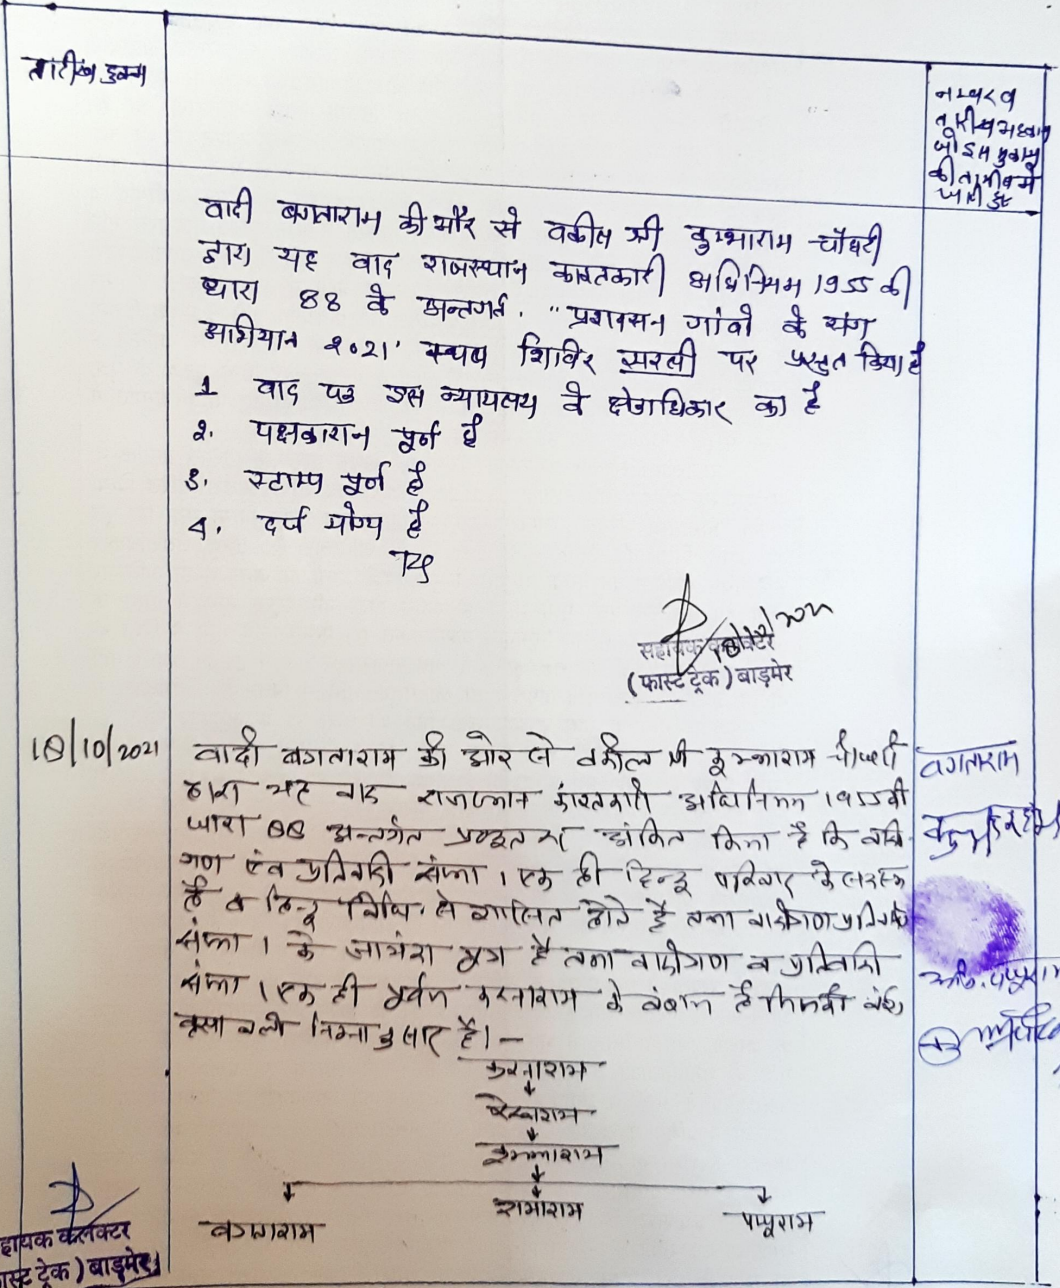 तारीख हुक्म
नम्बर व
तारीख अहकाम
जो इस हुकम
की तामील में
जारी हुए
वादी बगताराम की और से वकील श्री कुम्भाराम चौधरी
द्वारा यह वाद राजस्थान काश्तकारी अधिनियम 1955 की
धारा 88 के अन्तगर्त. "प्रशासन गांवो के संग
अभियान 2021' स्थल शिविर सरली पर प्रस्तुत किया है
1 वाद पत्र इस न्यायालय के क्षेत्राधिकार का है
2. पक्षकारान पूर्ण है
3. स्टाम्प पूर्ण है
4. दर्ज योग्य है
सहायक कलेक्टर
18/10/2021
(फास्ट ट्रेक) बाड़मेर
18/10/2021
वादी बगताराम की ओर से वकील श्री कुम्भाराम चौधरी
द्वारा यह वाद राजस्थान काश्तकारी अधिनियम 1955 की
धारा 88 अन्तर्गत प्रस्तुत कर अंकित किया है कि वादी
गण एंव प्रतिवादी संख्या 1 एक ही हिन्दू परिवार के सदस्य
है व हिन्दू विधि से शासित होते है तथा वादीगण प्रतिवादी
संख्या 1 के जायंदा पुत्र है तथा वादीगण व प्रतिवादी
संख्या 1 एक ही पूर्वज करनाराम के वंशज है जिनकी वंश
वृक्षा वली निम्नानुसार है। -
करनाराम
देदाराम
रामाराम
बगताराम
पप्पूराम
बगताराम
सहायक कलेक्टर
(फास्ट ट्रेक) बाड़मेर